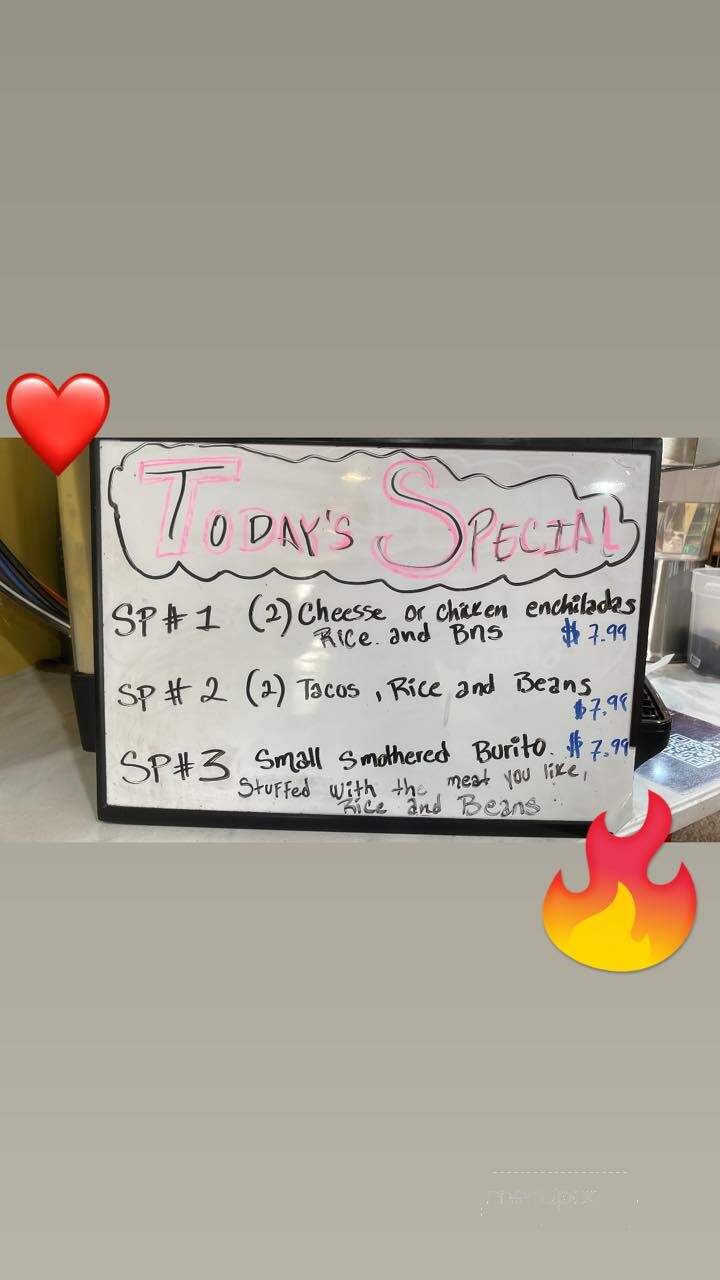 TODAY'S SPECIAL
SP # 1 (2) Cheesse or chicken enchiladas
Rice. and Bns $ 7.99
SP # 2 (2) Tacos, Rice and Beans
$7.98
SP#3 Small Smothered Burito. $ 7.99
Stuffed with the meat you like,
Rice and Beans
menupix